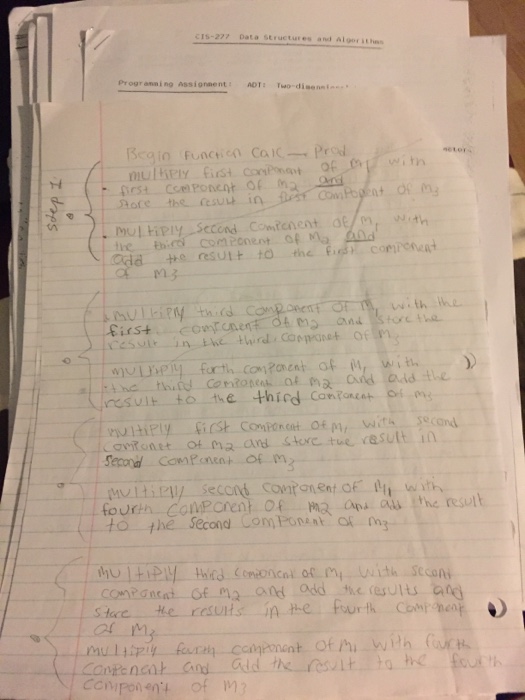 CIS-277 Data Structures and Algorithms
Programming Assignment: ADT: Two-dimensi
Begin Function Calc_Prod
Step 1:
multiply first component of M1 with
first component of M2 and
store the result in first component of M3
multiply second component of M1 with
the third component of M2 and
add the result to the first component
of M3
multiply third component of M1 with the
first component of M2 and store the
result in the third componet of M3
multiply forth component of M1 with
the third component of M2 and add the
result to the third component of M3
multiply first component of M1 with second
componet of M2 and store the result in
second component of M3
multiply second component of M1 with
fourth component of M2 and add the result
to the second component of M3
multiply third component of M1 with second
component of M2 and add the results and
store the results in the fourth component
of M3
multiply fourth component of M1 with fourth
component and add the result to the fourth
component of M3